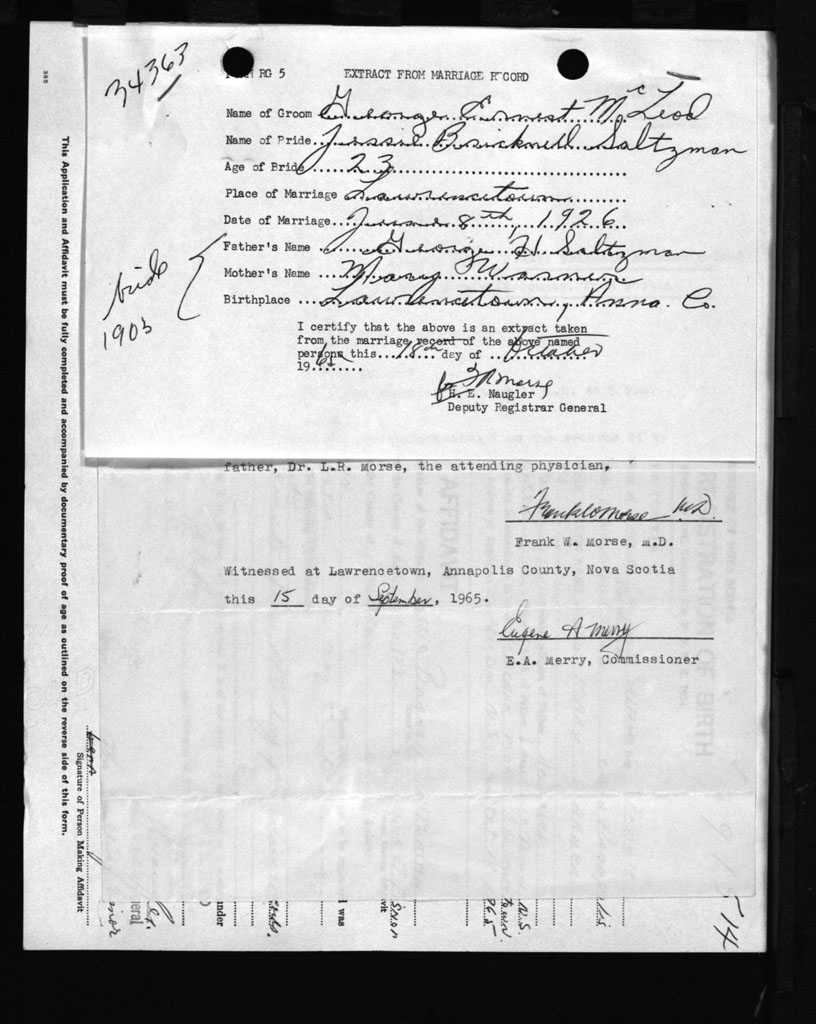 34363
RG 5 EXTRACT FROM MARRIAGE RECORD
Name of Groom George Ernest McLeod
Name of Bride Jessie Bricknell Saltzman
Age of Bride 23
Place of Marriage Lawrencetown
Date of Marriage June 8th, 1926
Father's Name George H Saltzman
Mother's Name Mary Warner
Birthplace Lawrencetown, Anna. Co.
bride
1903
I certify that the above is an extract taken
from the marriage record of the above named
persons this 18th day of October
1965
F R Morse
H. E. Naugler
Deputy Registrar General
father, Dr. L.R. Morse, the attending physician,
Frank W Morse M.D.
Frank W. Morse, M.D.
Witnessed at Lawrencetown, Annapolis County, Nova Scotia
this 15 day of September, 1965.
Eugene A Merry
E.A. Merry, Commissioner
This Application and Affidavit must be fully completed and accompanied by documentary proof of age as outlined on the reverse side of this form.
Signature of Person Making Affidavit
I was
N.S.
965
14